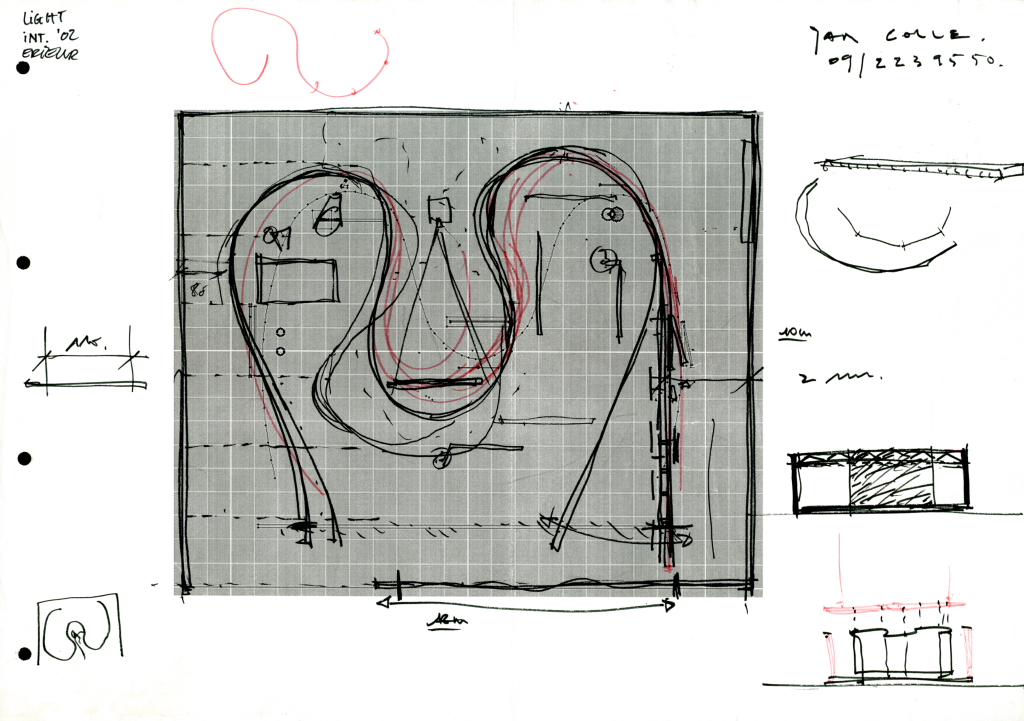 LIGHT
INT. '02
ERIEUR
JAN COLLE.
09/2239550.
86
10m
2 m.
18m